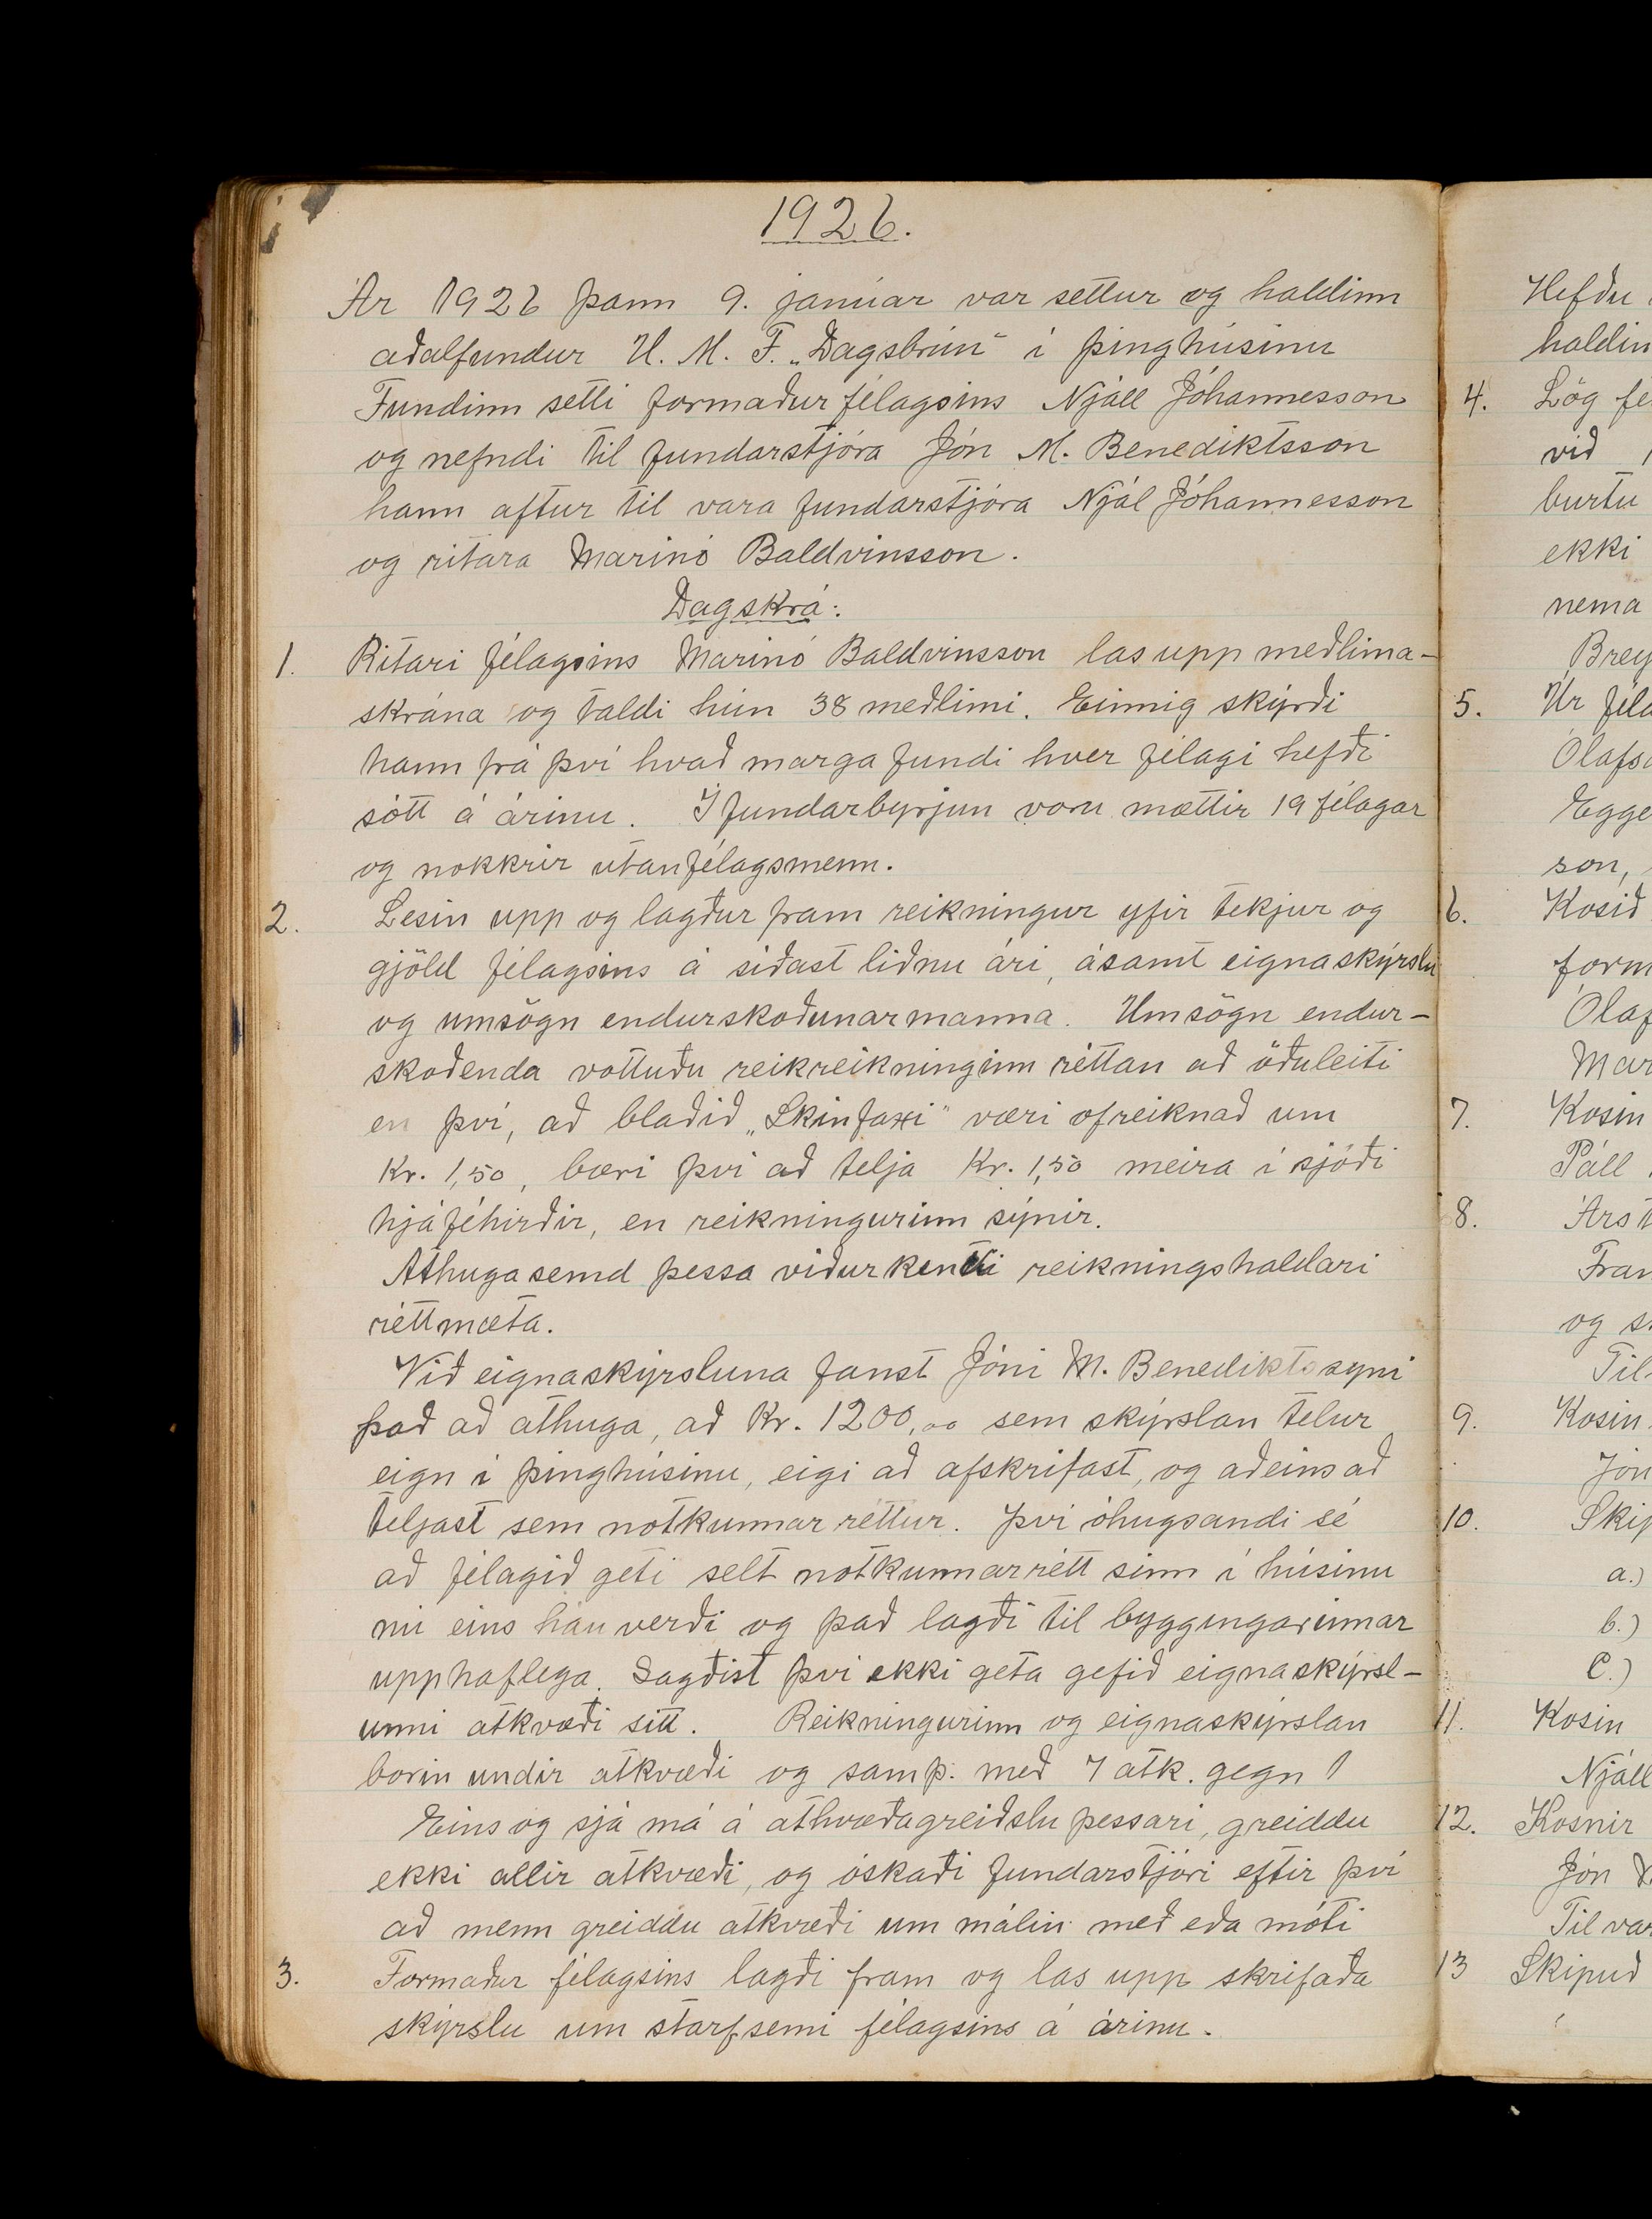 1926.
Ár 1926 þann 9. janúar var settur og haldinn
aðalfundur U. M. F. „Dagsbrún“ í þinghúsinu
Fundinn setti formaður félagsins Njáll Jóhannesson
og nefndi til fundarstjóra Jón M. Benediktsson
hann aftur til vara fundarstjóra Njál Jóhannesson
og ritara Marinó Baldvinsson.
Dagskrá:
1. Ritari félagsins Marinó Baldvinsson las upp meðlima-
skrána og taldi hún 38 meðlimi. Einnig skýrði
hann frá því hvað marga fundi hver félagi hefði
sótt á árinu. Í fundarbyrjun voru mættir 19 félagar
og nokkrir utanfélagsmenn.
2. Lesin upp og lagður fram reikningur yfir tekjur og
gjöld félagsins á síðast liðnu ári, ásamt eignaskýrslu
og umsögn endurskoðunarmanna. Umsögn endur-
skoðenda vottuðu reikreikninginn réttan að öðuleiti
en því, að blaðið „Skinfaxi“ væri ofreiknað um
Kr. 1,50, bæri því að telja Kr. 1,50 meira í sjóði
hjá féhirðir, en reikningurinn sýnir.
Athugasemd þessa viðurkendi reikningshaldari
réttmæta.
Við eignaskýrsluna fanst Jóni M. Benediktssyni
það að athuga, að Kr. 1200,00 sem skýrslan telur
eign í þinghúsinu, eigi að afskrifast, og aðeins að
teljast sem notkunnar réttur. Því óhugsandi sé
að félagið geti selt notkunnarrétt sinn í húsinu
nú eins háu verði og það lagði til byggingarinnar
upphaflega. Sagðist því ekki geta gefið eignaskýrsl-
unni atkvæði sitt. Reikningurinn og eignaskýrslan
borin undir atkvæði og samþ. með 7 atk. gegn 1
Eins og sjá má á athvæðagreiðslu þessari, greiddu
ekki allir atkvæði, og óskaði fundarstjóri eftir því
að menn greiddu atkvæði um málin með eða móti
3. Formaður félagsins lagði fram og las upp skrifaða
skýrslu um starfsemi félagsins á árinu.
Hefðu
haldin
4. Lög fé
við
burtu
ekki
nema
Brey
5. Úr féla
Ólafs
Egge
son,
6. Kosið
form
Ólaf
Mar
7. Kosin
Páll
8. Árst
Fram
og s
Til
9. Kosin
Jón
10. Skip
a.)
b.)
c.)
11. Kosin
Njáll
12. Kosnir
Jón
Til var
13 Skipuð